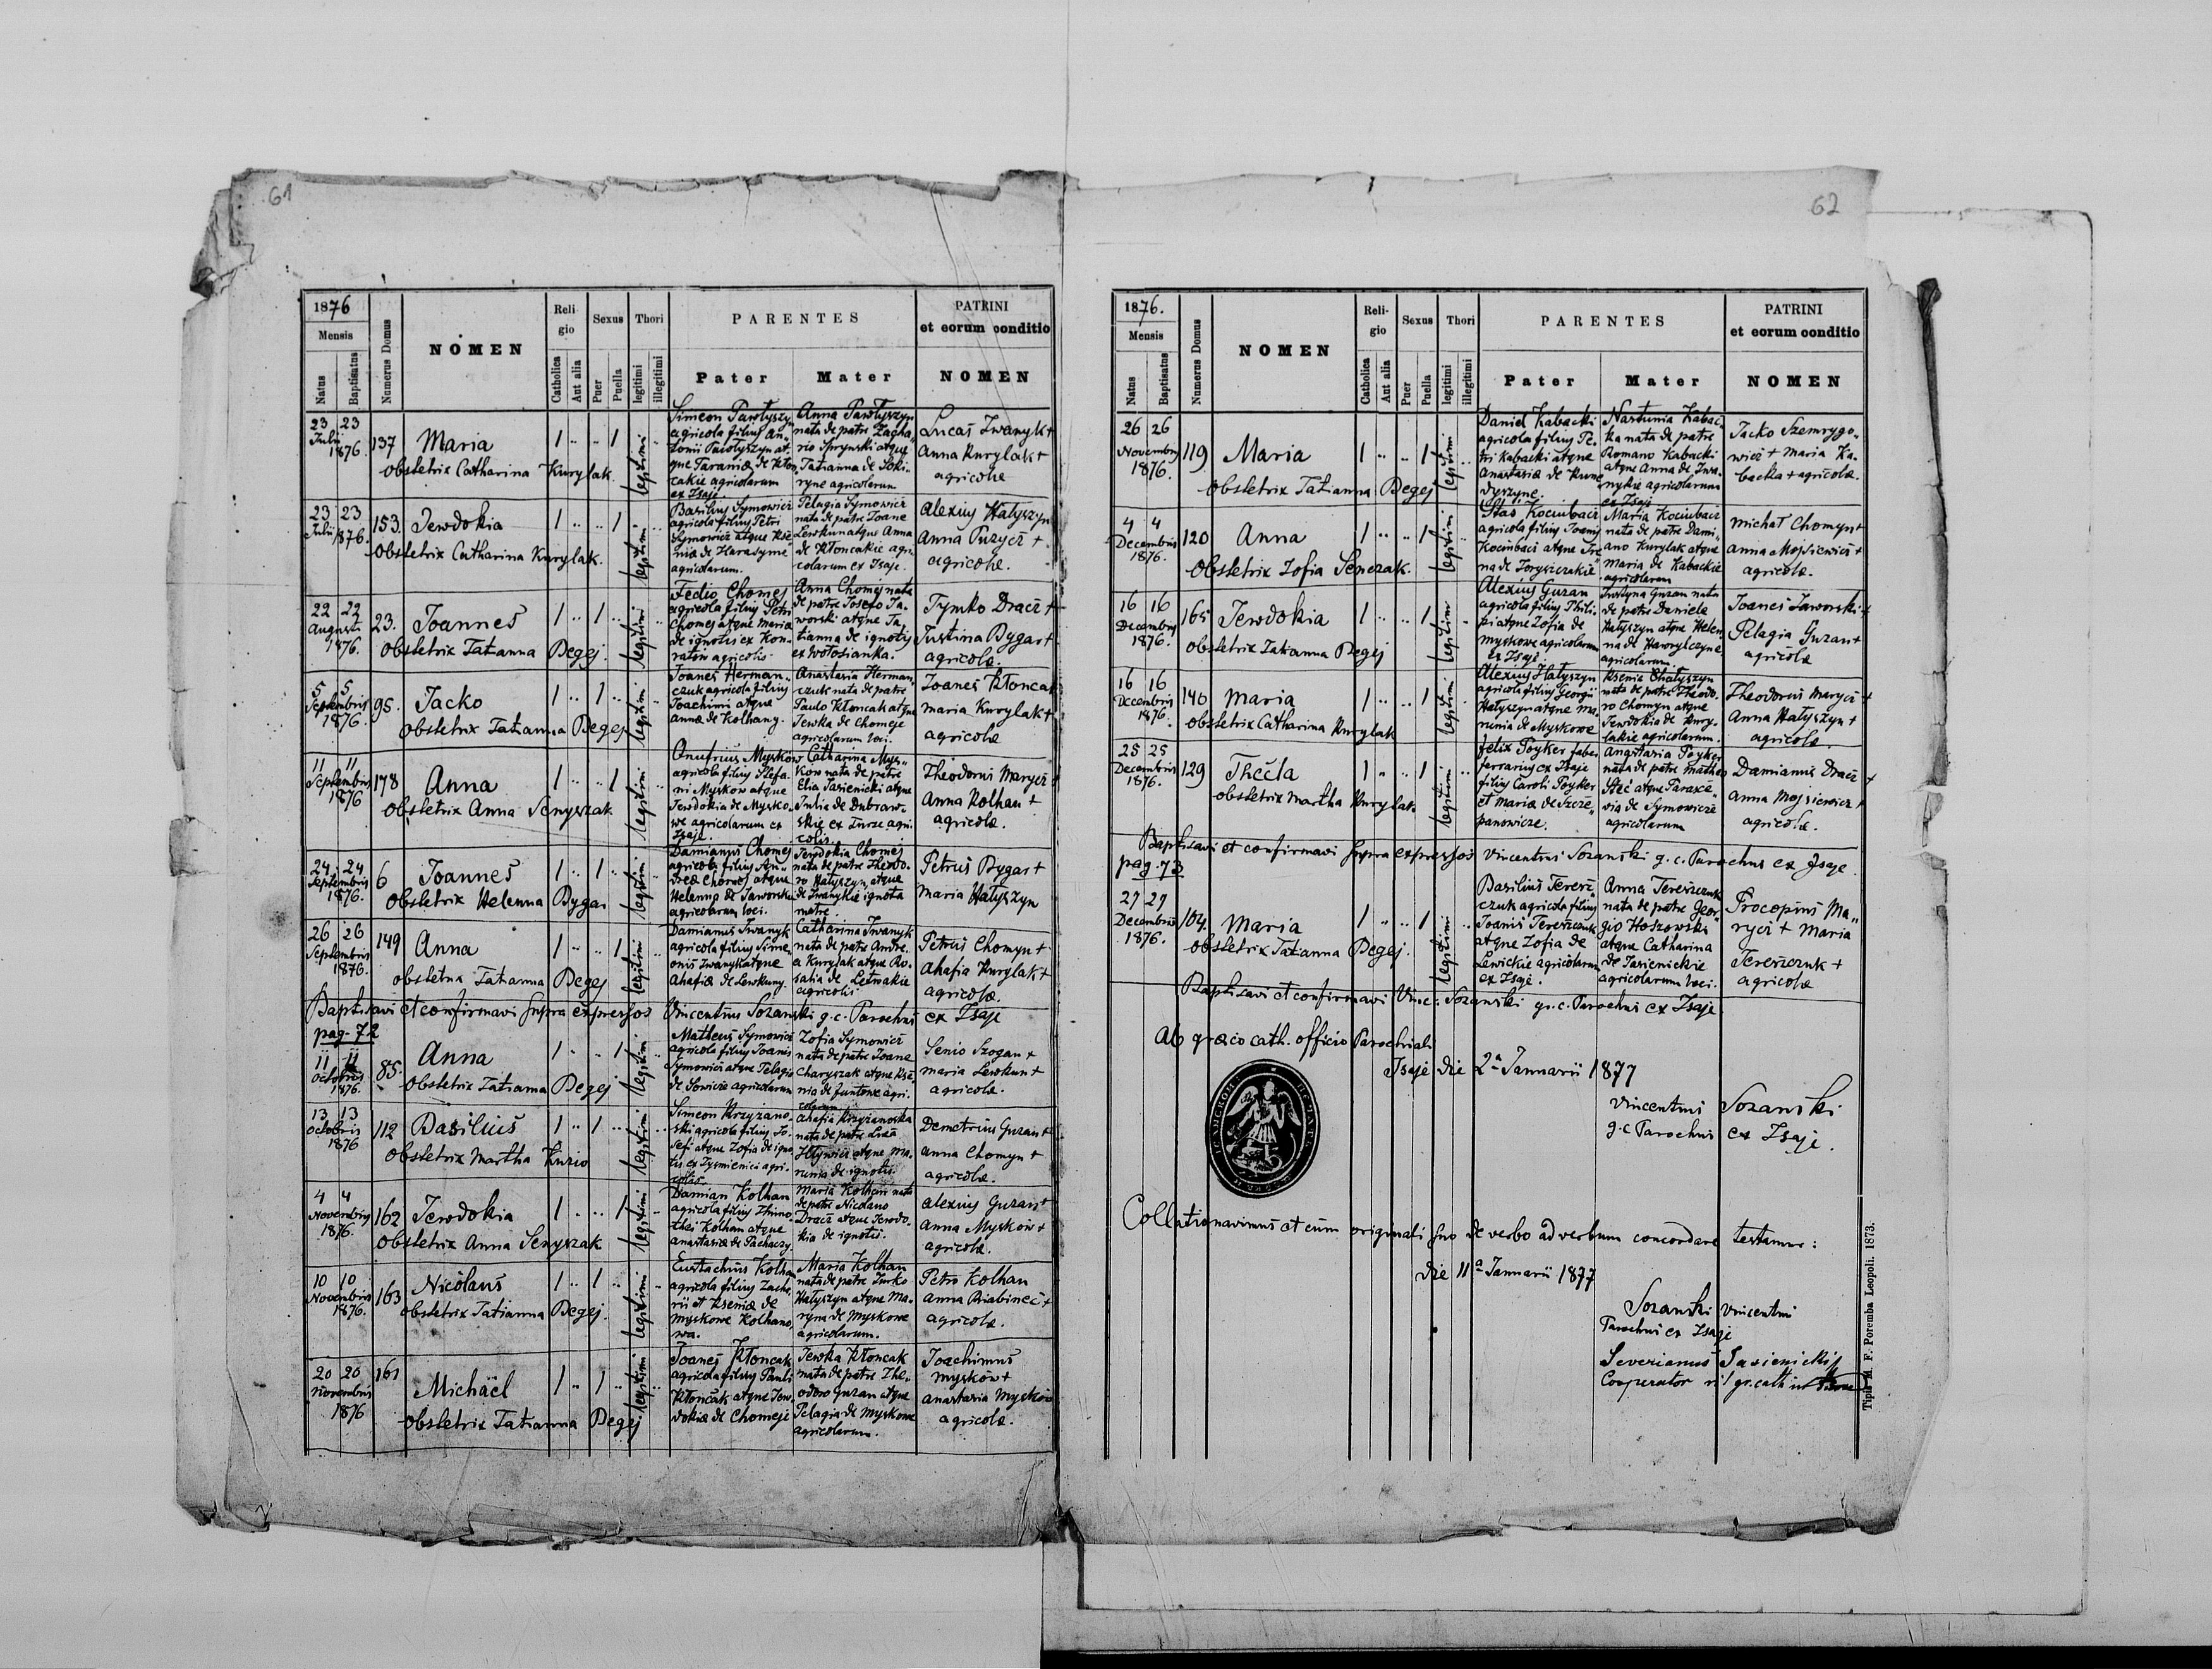 61
1876
Mensis
Natus
Baptisatus
Numerus Domus
NOMEN
Reli-
gio
Catholica
Aut alia
Sexus
Puer
Puella
Thori
legitimi
illegitimi
PARENTES
Pater
Mater
PATRINI
et eorum conditio
NOMEN
23 23
Julii
1876
137
Maria
obstetrix Catharina Kurylak
1 .. .. 1
legitimi
Simeon Pawłyszyn
agricola filius An-
tonii Pawłyszyn at-
que Taraniæ de Kłon-
cakie agricolarum
ex Isaje.
Anna Pawłyszyn
nata de patre Zacha-
rio Sprynski atque
Tatianna de Soki-
ryne agricolarum
Lucas Iwanyk +
Anna Kurylak +
agricolæ
23 23
Julii 1876.
153.
Jewdokia
Obstetrix Catharina Kurylak.
1 .. .. 1
legitimi
Basilius Symowicz
agricola filius Petri
Symowicz atque Kse-
niæ de Harasyme
agricolarum.
Pelagia Symowicz
nata de patre Joane
Lewkun atque Anna
de Kłoncakie agri-
colarum ex Isaje.
Alexius Hatyszyn
Anna Puzycz +
agricolæ.
22 22
Augusti
1876.
23.
Joannes
Obstetrix Tatianna Begej.
1 .. 1 ..
legitimi
Fedio Chomej
agricola filius Petri
Chomej atque Maria
de ignotis ex Kon-
ratów agricolis
Anna Chomej nata
de patre Josefo Ja-
worski atque Ta-
tianna de ignotis
ex Wołosianka.
Tymko Dracz +
Justina Bygar +
agricolæ.
5 5
Septembris
1876.
95.
Jacko
Obstetrix Tatianna Begej
1 .. 1 ..
legitimi
Joanes Herman-
czuk agricola filius
Joachimi atque
Annæ de Kolhany.
Anastasia Herman-
czuk nata de patre
Paulo Kłoncak atque
Jewka de Chomeje
agricolarum loci.
Joanes Kłoncak
Maria Kurylak +
agricolæ
11 11
Septembris
1876
178
Anna
Obstetrix Anna Senyszak
1 .. .. 1
legitimi
Onufrius Myskow
agricola filius Stefa-
ni Myskow atque
Jewdokia de Mysko-
we agricolarum ex
Isaje.
Catharina Mys-
kow nata de patre
Elia Jasienicki atque
Julia de Dubraw-
skie ex Turze agri-
colis.
Theodorus Marycz +
Anna Kolhan +
agricolæ.
24 24
Septembris
1876.
6
Joannes
Obstetrix Helenna Bygar
1 .. 1 ..
legitimi
Damianus Chomej
agricola filius An-
dreæ Chomej atque
Helenna de Jaworskie
agricolarum loci.
Jewdokia Chomej
nata de patre Theodo-
ro Hatyszyn atque
de Iwanykie ignota
matre.
Petrus Bygar +
Maria Hatyszyn
26 26
Septembris
1876.
149
Anna
obstetrix Tatianna Begej
1 .. .. 1
legitimi
Damianus Iwanyk
agricola filius Sime-
onis Iwanyk atque
Ahafiæ de Lewkuny.
Catharina Iwanyk
nata de patre Andre-
a Kurylak atque Ro-
salia de Letwakie
agricolis
Petrus Chomyn +
Ahafia Kurylak +
agricolæ.
Baptisavi et confirmavi supra expressos Vincentius Sozanski g. c. Parochus ex Isaje
pag. 72
11 11
Octobris
1876.
85.
Anna
Obstetrix Tatianna Begej
1 .. .. 1
legitimi
Matheus Symowicz
agricola filius Joanis
Symowicz atque Pelagia
de Sowicze agricolarum
Zofia Symowicz
nata de patre Joane
Charyszak atque Kse-
nia de Juntone agri-
colarum
Senio Szogan +
Maria Lewkun +
agricolæ.
13 13
Octobris
1876
112
Basilius
Obstetrix Martha Kuzio
1 .. 1 ..
legitimi
Simeon Krzyżano-
ski agricola filius Jo-
sefi atque Zofia de igno-
tis ex Zysmienici agri-
colis.
Ahafia Krzyżanoska
nata de patre Luca
Iltywicz atque Ma-
runia de ignotis.
Demetrius Guzan +
Anna Chomyn +
agricolæ.
4 4
Novembris
1876.
162
Jewdokia
Obstetrix Anna Senyszak
1 .. .. 1
legitimi
Damian Kolhan
agricola filius Thimo-
thei Kolhan atque
Anastasiæ de Pachaczy.
Maria Kolhan nata
de patre Nicolano
Dracz atque Jewdo-
kia de ignotis.
Alexius Guzan +
Anna Myskow +
agricolæ.
10 10
Novembris
1876.
163
Nicolaus
Obstetrix Tatianna Begej.
1 .. 1 ..
legitimi
Eustachius Kolhan
agricola filius Zacha-
rii et Kseniæ de
Myskowe Kolhano-
wa.
Maria Kolhan
nata de patre Jurko
Hatyszyn atque Ma-
ryna de Myskowe
agricolarum.
Petro Kolhan
Anna Riabinec +
agricolæ.
20 20
Novembris
1876
161
Michaël
Obstetrix Tatianna Begej
1 .. 1 ..
legitimi
Joanes Kłoncak
agricola filius Pauli
Kłoncak atque Jew-
dokiæ de Chomeje
Jewka Kłoncak
nata de patre The-
odoro Guzan atque
Pelagia de Myskowe
agricolarum.
Joachimus
Myskow +
Anastasia Myskow
agricolæ.
62
1876.
Mensis
Natus
Baptisatus
Numerus Domus
NOMEN
Reli-
gio
Catholica
Aut alia
Sexus
Puer
Puella
Thori
legitimi
illegitimi
PARENTES
Pater
Mater
PATRINI
et eorum conditio
NOMEN
26 26
Novembris
1876.
119
Maria
Obstetrix Tatianna Begej
1 .. .. 1
legitimi
Daniel Kabacki
agricola filius Pe-
tri Kabacki atque
Anastasiæ de Kune-
dyszyne.
Nastunia Kabac-
ka nata de patre
Romano Kabacki
atque Anna de Iwa-
nykie agricolarum
ex Isaje
Jacko Szemrygo-
wicz + Maria Ka-
backa + agricolæ.
4 4
Decembris
1876.
120
Anna
Obstetrix Zofia Senczak.
1 .. .. 1
legitimi
Stas Kociubacz
agricola filius Joanis
Kociubacz atque Ire-
na de Zoryszczakie
Maria Kociubacz
nata de patre Dami-
ano Kurylak atque
Maria de Kabackie
agricolarum
Michał Chomyn +
Anna Mojsiewicz +
agricolæ.
16 16
Decembris
1876.
165
Jewdokia
obstetrix Tatianna Begej
1 .. .. 1
legitimi
Alexius Guzan
agricola filius Phili-
pi atque Zofia de
Myskowe agricolarum
ex Isaje.
Justyna Guzan nata
de patre Daniele
Hatyszyn atque Helen-
na de Hawrylczyne
agricolarum.
Joanes Jaworski +
Pelagia Guzan +
agricolæ
16 16
Decembris
1876.
140
Maria
obstetrix Catharina Kurylak
1 .. .. 1
legitimi
Alexius Hatyszyn
agricola filius Georgii
Hatyszyn atque Ma-
runia de Myskowe
Ksenia Hatyszyn
nata de patre Theodo-
ro Chomyn atque
Jewdokia de Kury-
lakie agricolarum.
Theodorus Marycz +
Anna Hatyszyn +
agricolæ.
25 25
Decembris
1876.
129
Thecla
obstetrix Martha Kurylak
1 .. .. 1
legitimi
Felix Poyker faber
ferrarius ex Isaje
filius Caroli Poyker
et Mariæ de Szcze-
panowicze.
Anastasia Poyker
nata de patre Matheo
Steć atque Paraxe-
via de Symowicze
agricolarum
Damianus Dracz +
Anna Mojsiewicz +
agricolæ.
Baptisavi et confirmavi supra expressos Vincentius Sozanski g. c. Parochus ex Isaje
pag. 73
27 27
Decembris
1876.
104.
Maria
obstetrix Tatianna Begej.
1 .. .. 1
legitimi
Basilius Tereszc-
czuk agricola filius
Joanis Tereszczuk
atque Zofia de
Lewickie agricolarum
ex Isaje.
Anna Tereszczuk
nata de patre Geor-
gio Hoszowski
atque Catharina
de Jasienickie
agricolarum loci.
Procopius Ma-
rycz + Maria
Tereszczuk +
agricolæ
Baptisavi et confirmavi Vinc. Sozanski gr. c. Parochus ex Isaje
Ab græco cath. officio Parochiali
Isaje die 2ª Januarii 1877
Vincentius Sozanski
g. c Parochus ex Isaje.
Collationavimus et cum originali suo de verbo ad verbum concordare testamur:
die 11ª Januarii 1877
Sozanski Vincentius
Parochus ex Isaje
Severianus Jasienickij
Cooperator gr. cath
Tipis M. F. Poremba Leopoli. 1873.